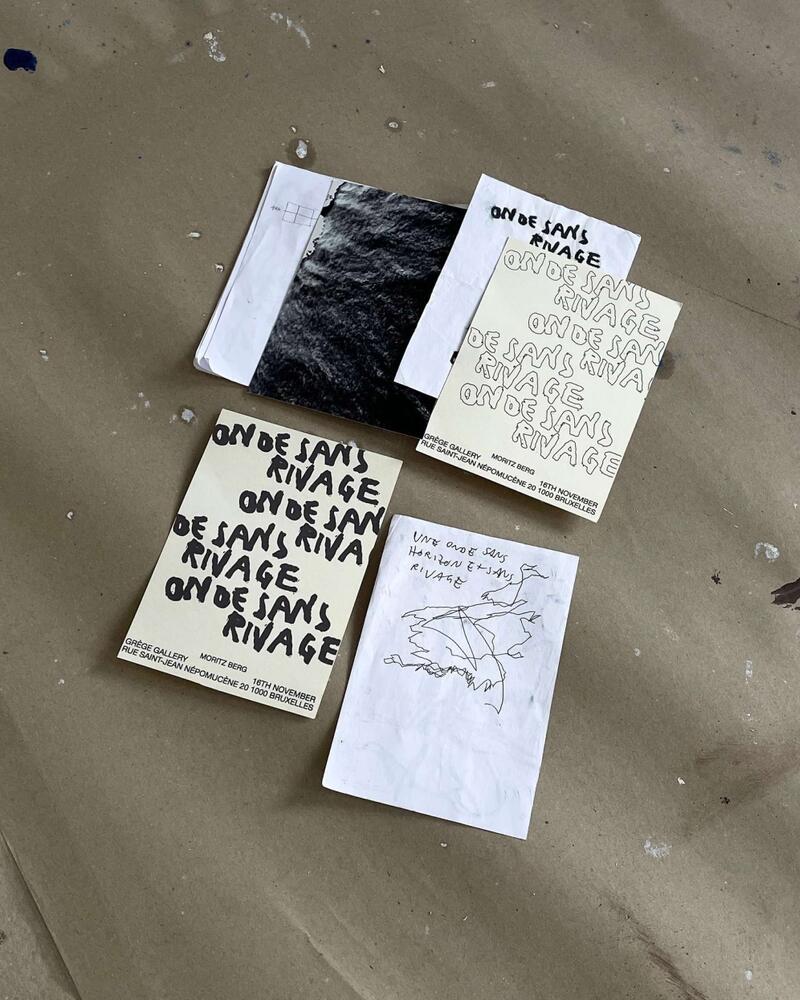 ONDE SANS
RIVAGE
ONDE SANS
RIVAGE
ONDE SAN
DE SANS RIVA
RIVAGE
ONDE SANS
RIVAGE
GRÈGE GALLERY MORITZ BERG 16TH NOVEMBER
RUE SAINT-JEAN NÉPOMUCÈNE 20 1000 BRUXELLES
ONDE SANS
RIVAGE
ONDE SAN
DE SANS RIVA
RIVAGE
ONDE SANS
RIVAGE
GRÈGE GALLERY MORITZ BERG 16TH NOVEMBER
RUE SAINT-JEAN NÉPOMUCÈNE 20 1000 BRUXELLES
UNE ONDE SANS
HORIZON ET SANS
RIVAGE